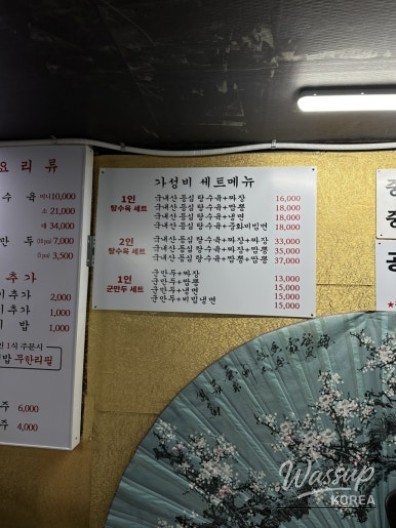 요 리 류
수 육 미니10,000
소 21,000
대 34,000
만 두 7,000
3,500
추 가
추가 2,000
추가 1,000
밥 1,000
1식 주문시
밥 무한리필
주 6,000
주 4,000
가성비 세트메뉴
1인
탕수육 세트
국내산 등심 탕수육+짜장 16,000
국내산 등심 탕수육+짬뽕 18,000
국내산 등심 탕수육+냉면 18,000
국내산 등심 탕수육+중화비빔면 18,000
2인
탕수육 세트
국내산 등심 탕수육+짜장+짜장 33,000
국내산 등심 탕수육+짜장+짬뽕 35,000
국내산 등심 탕수육+짬뽕+짬뽕 37,000
1인
군만두 세트
군만두+짜장 13,000
군만두+짬뽕 15,000
군만두+냉면 15,000
군만두+비빔냉면 15,000
공
Wassup
KOREA